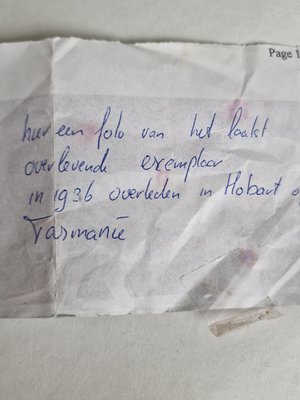 Page 1
hier een foto van het laatst
overlevende exemplaar
in 1936 overleden in Hobart o
Tasmanië